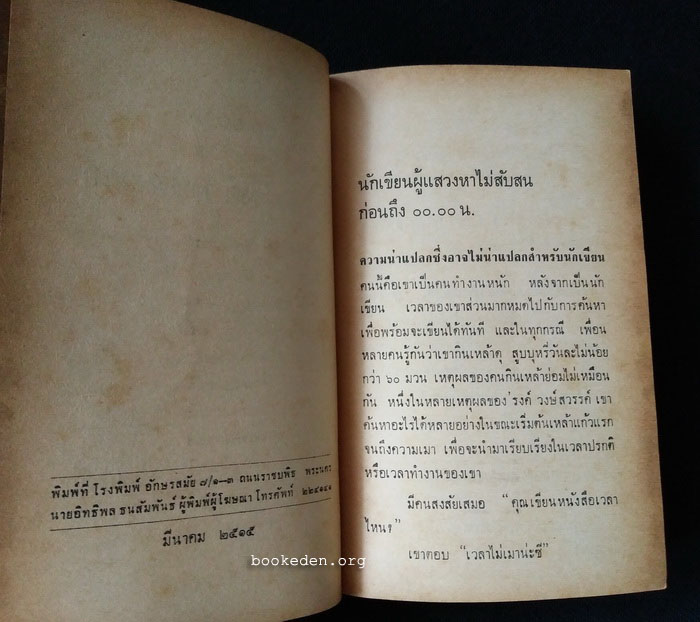 พิมพ์ที่ โรงพิมพ์ อักษรสมัย ๗/๑—๓ ถนนราชบพิธ พระนคร
นายอิทธิพล ธนสัมพันธ์ ผู้พิมพ์ผู้โฆษณา โทรศัพท์
มีนาคม ๒๕๑๕
นักเขียนผู้แสวงหาไม่สับสน
ก่อนถึง ๐๐.๐๐ น.
ความน่าแปลกซึ่งอาจไม่น่าแปลกสำหรับนักเขียน
คนนี้คือเขาเป็นคนทำงานหนัก หลังจากเป็นนัก
เขียน เวลาของเขาส่วนมากหมดไปกับการค้นหา
เพื่อพร้อมจะเขียนได้ทันที และในทุกกรณี เพื่อน
หลายคนรู้กันว่าเขากินเหล้าดุ สูบบุหรี่วันละไม่น้อย
กว่า ๖๐ มวน เหตุผลของคนกินเหล้าย่อมไม่เหมือน
กัน หนึ่งในหลายเหตุผลของ'รงค์ วงษ์สวรรค์ เขา
ค้นหาอะไรได้หลายอย่างในขณะเริ่มต้นเหล้าแก้วแรก
จนถึงความเมา เพื่อจะนำมาเรียบเรียงในเวลาปรกติ
หรือเวลาทำงานของเขา
มีคนสงสัยเสมอ “คุณเขียนหนังสือเวลา
ไหน?”
เขาตอบ “เวลาไม่เมาน่ะซี”
bookeden.org